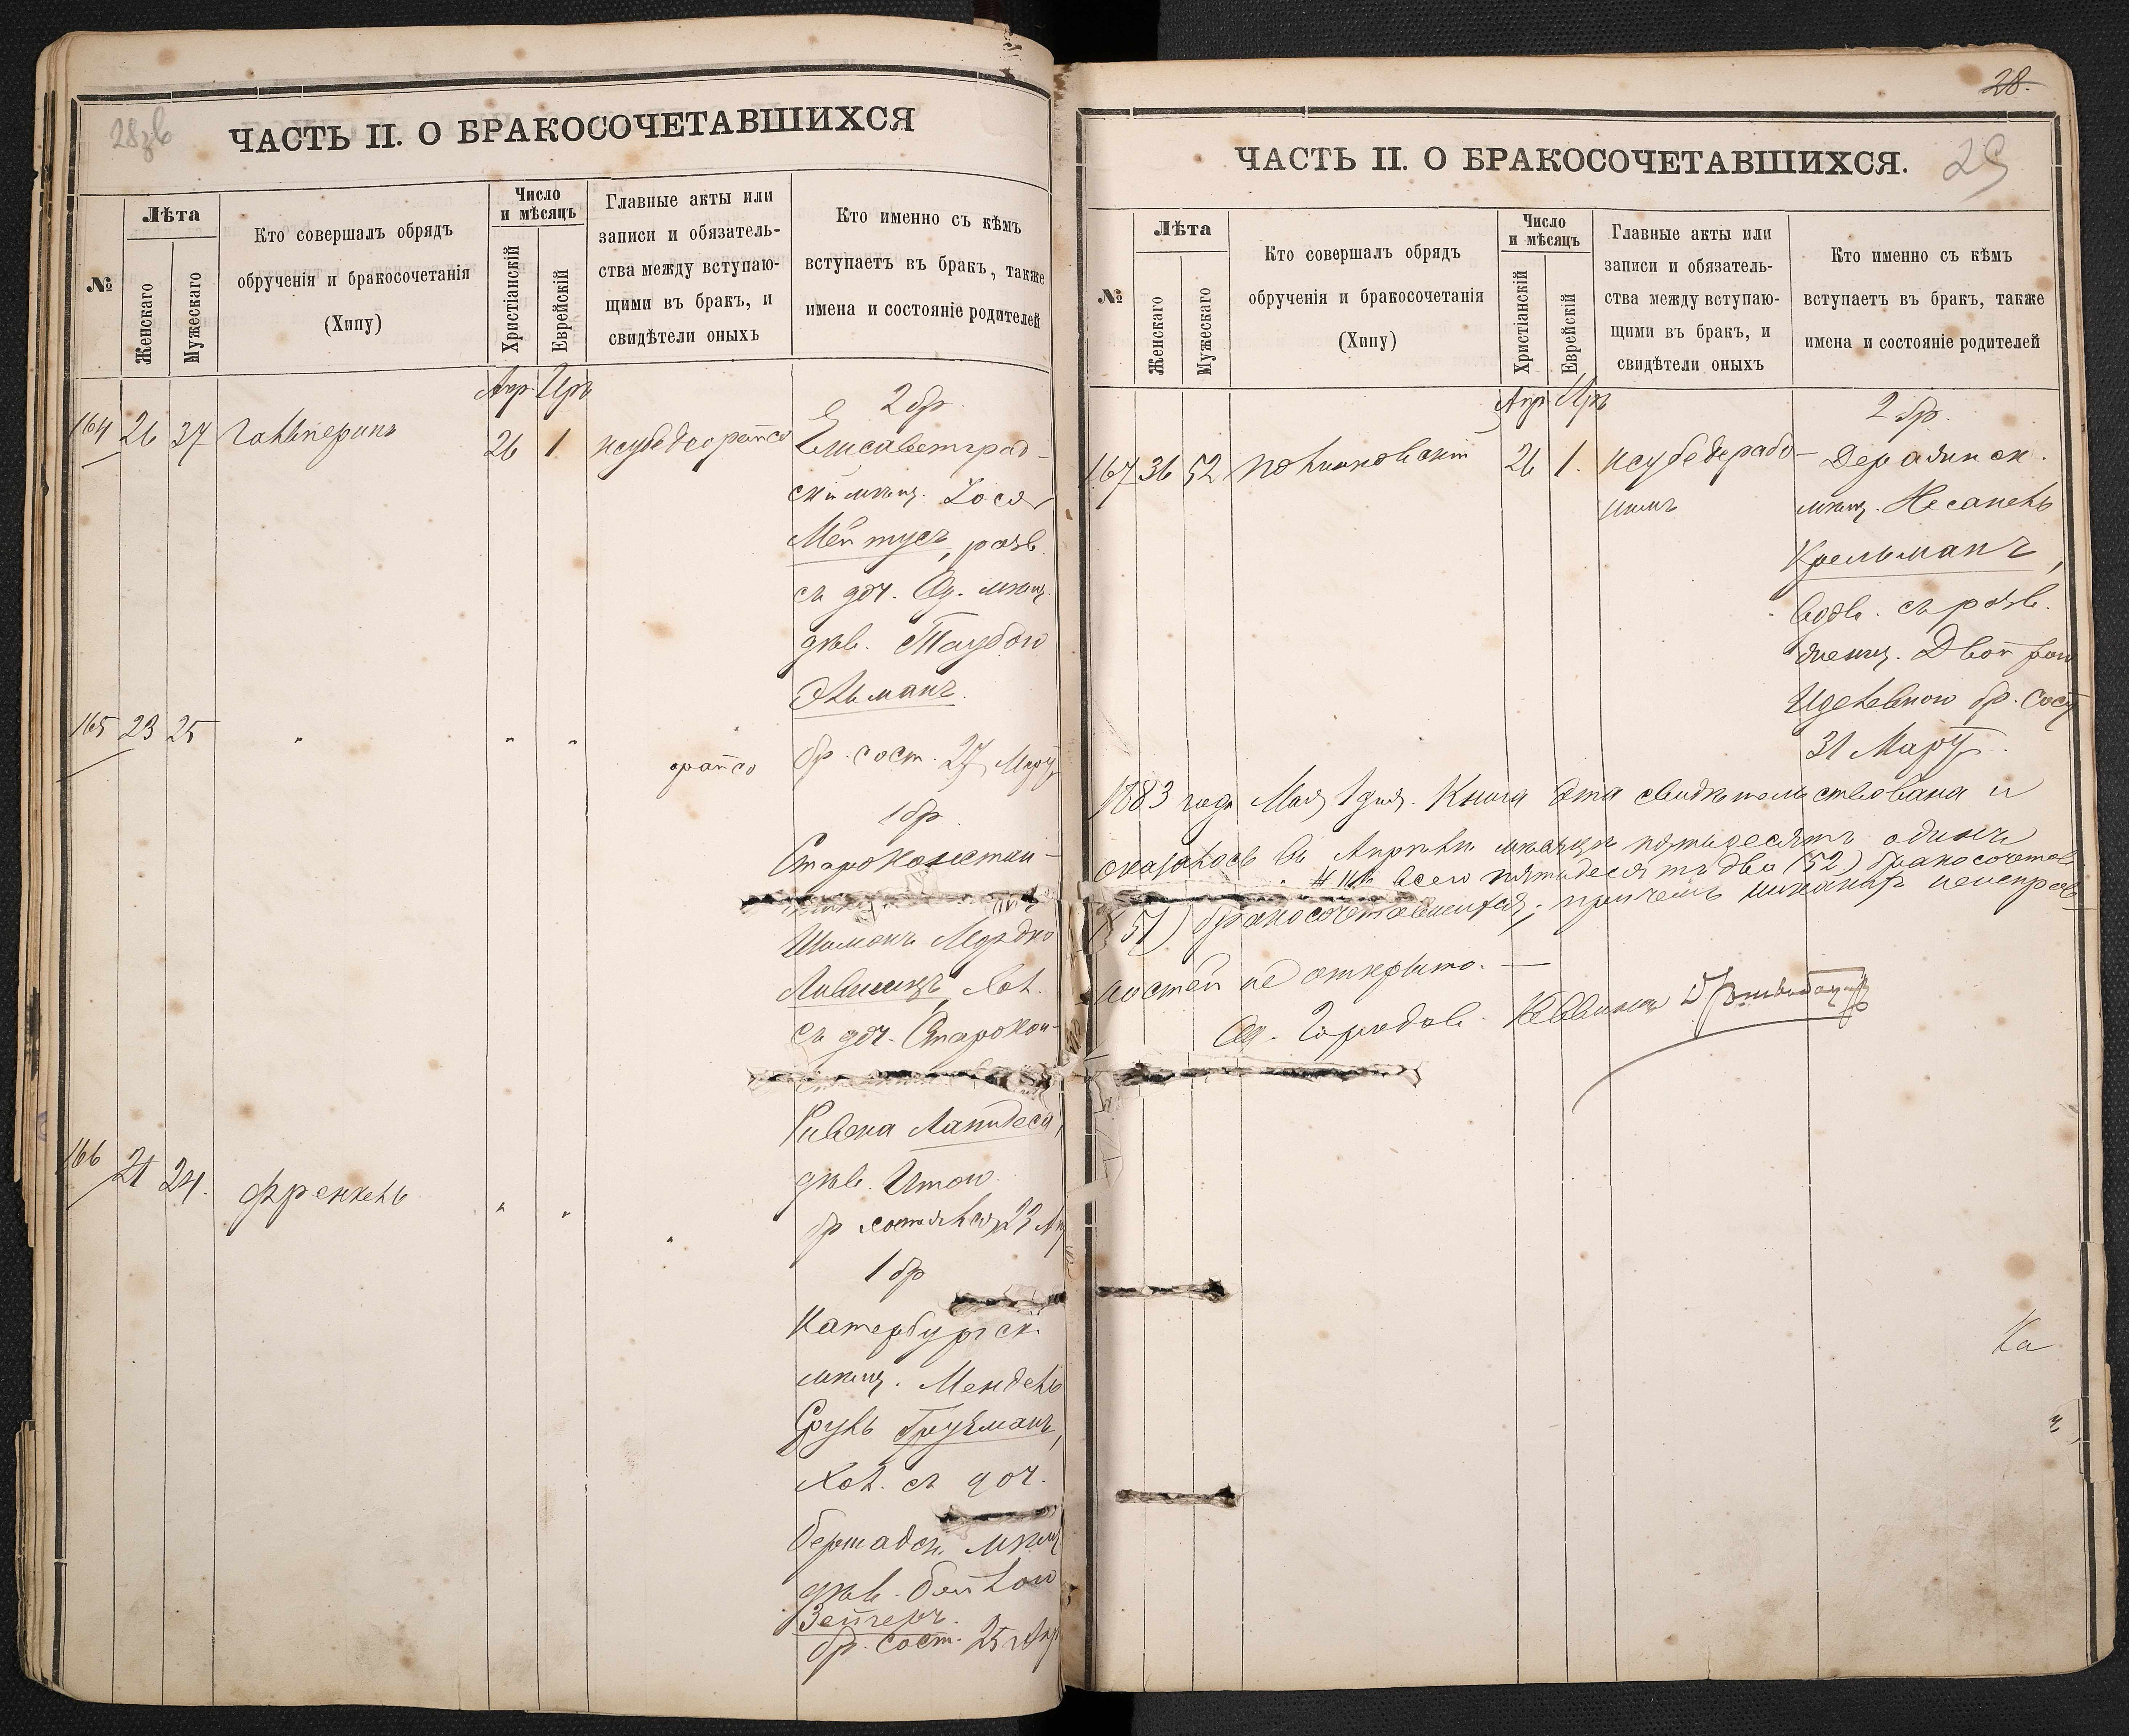 28зв
ЧАСТЬ II. О БРАКОСОЧЕТАВШИХСЯ
№
Лѣта
Женскаго
Мужескаго
Кто совершалъ обрядъ
обрученія и бракосочетанія
(Хипу)
Число
и мѣсяцъ
Христіанскій
Еврейскій
Главные акты или
записи и обязатель-
ства между вступаю-
щими въ бракъ, и
свидѣтели оныхъ
Кто именно съ кѣмъ
вступаетъ въ бракъ, также
имена и состояніе родителей
Апр Иръ
2 бр.
164 26 37 Гальперинъ 26 1 Елисаветград-
ск. мѣщ. Зося
Мейтусъ, разв.
съ доч. Од. мѣщ.
дѣв. Таубою
Эльманъ.
165 23 25 " " " бр. сост. 27 Март
1 бр.
Староконстан-
Шимонъ Мордко
Лившицъ, хол.
съ доч. Старокон-
Ривена Лапидеса,
166 21 24. Френкель " " "
дѣв. Итою.
бр. состоялся 23
1 бр
Катербургск.
мѣщ. Мендель
Сруль Грузманъ,
хол. съ доч.
бершадск. мѣщ
дѣв. Бейлою
Зейгеръ.
бр. сост. 25 Апр
28.
29
ЧАСТЬ II. О БРАКОСОЧЕТАВШИХСЯ.
№
Лѣта
Женскаго
Мужескаго
Кто совершалъ обрядъ
обрученія и бракосочетанія
(Хипу)
Число
и мѣсяцъ
Христіанскій
Еврейскій
Главные акты или
записи и обязатель-
ства между вступаю-
щими въ бракъ, и
свидѣтели оныхъ
Кто именно съ кѣмъ
вступаетъ въ бракъ, также
имена и состояніе родителей
Апр Иръ
2 бр.
167 36 52 Полинковскій 26 1.
мѣщ. Несанель
Крельманъ,
вдов. съ разв.
Двойрою
бр. сост
31 Март.
1883 года Мая 1 дня. Книга эта свидѣтельствована и
оказалось въ Апрѣлѣ мѣсяцѣ пятьдесятъ одинъ
всего пятьдесятъ два (52) бракосочетав
(51) бракосочетавшихся; причемъ никакихъ неисправ-
ностей не открыто. —
Од. Городов.
Ка